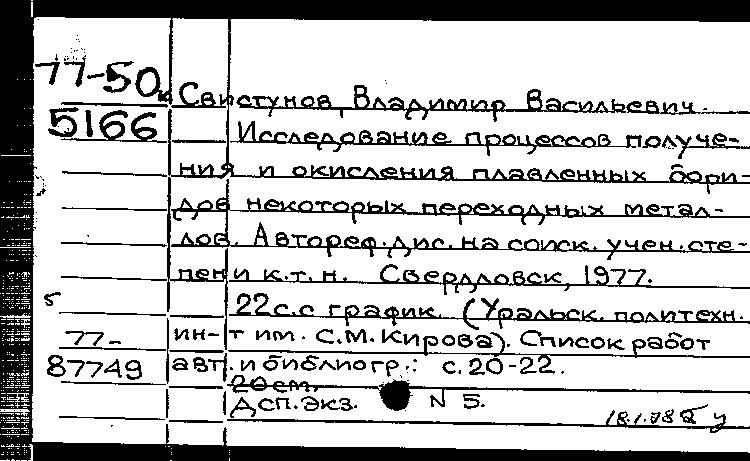 77-50к Свистунов, Владимир Васильевич.
5166 Исследование процессов получе-
ния и окисления плавленных бори-
дов некоторых переходных метал-
лов. Автореф. дис. на соиск. учен. сте-
пени к.т.н. Свердловск, 1977.
5 22с. с график. (Уральск. политехн.
77- ин-т им. С.М. Кирова). Список работ
87749 авт. и библиогр.: с. 20-22.
20 см.
ДСП. Экз. N 5.
18.1.78